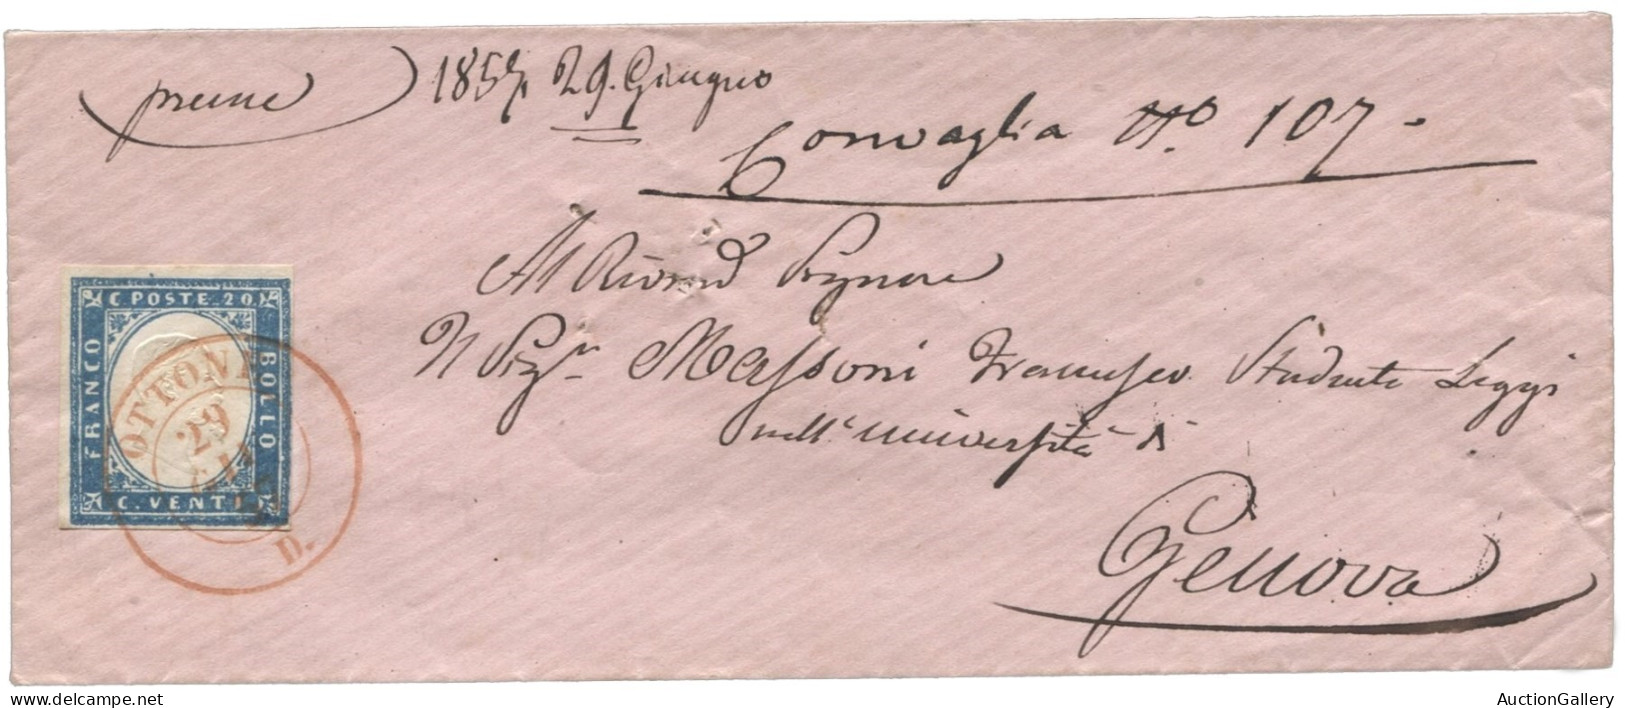 preme 1857, 29. Giugno
Convaglia N.o 107-
Al Riverd Signore
Il Sigr. Massoni Francesco Studente Leggi
nell'università di
Genova
C. POSTE. 20.
FRANCO
BOLLO
C. VENTI
OTTONE
29
GIU
D.
AuctionGallery